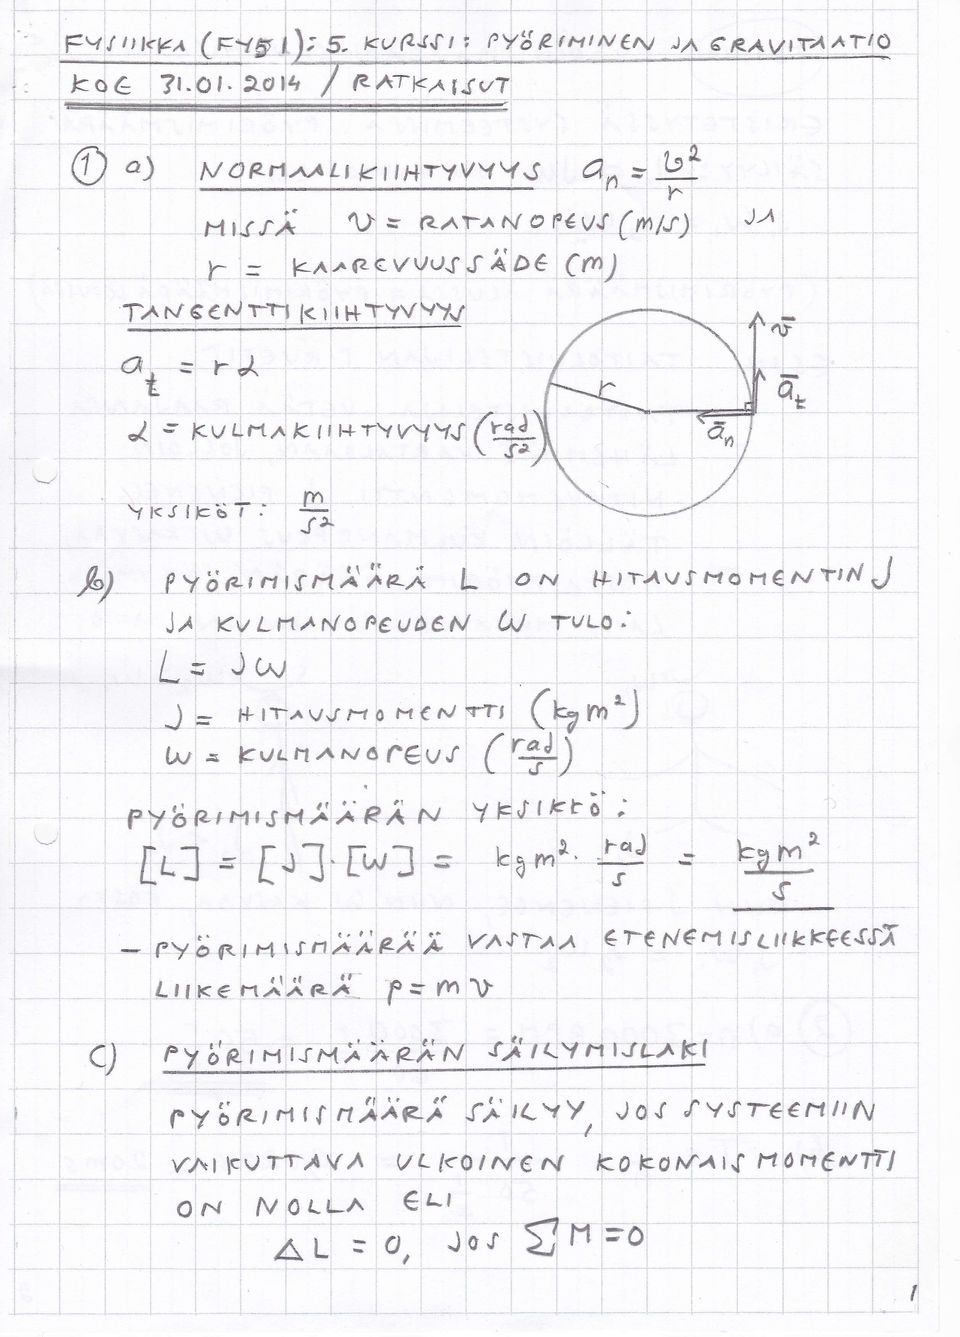 FYSIIKKA (FY51): 5. KURSSI: PYÖRIMINEN JA GRAVITAATIO
KOE 31.01.2014 / RATKAISUT
① a) NORMAALIKIIHTYVYYS aₙ = v²/r
MISSÄ v = RATANOPEUS (m/s) JA
r = KAAREVUUSSÄDE (m)
TANGENTTIKIIHTYVYYS
aₜ = rα
α = KULMAKIIHTYVYYS (rad/s²)
YKSIKÖT: m/s²
r
v̄
āₜ
āₙ
b) PYÖRIMISMÄÄRÄ L ON HITAUSMOMENTIN J
JA KULMANOPEUDEN ω TULO:
L = Jω
J = HITAUSMOMENTTI (kgm²)
ω = KULMANOPEUS (rad/s)
PYÖRIMISMÄÄRÄN YKSIKKÖ:
[L] = [J]·[ω] = kgm² · rad/s = kgm²/s
– PYÖRIMISMÄÄRÄÄ VASTAA ETENEMISLIIKKEESSÄ
LIIKEMÄÄRÄ p = mv
c) PYÖRIMISMÄÄRÄN SÄILYMISLAKI
PYÖRIMISMÄÄRÄ SÄILYY, JOS SYSTEEMIIN
VAIKUTTAVA ULKOINEN KOKONAISMOMENTTI
ON NOLLA ELI
ΔL = 0, JOS ΣM = 0
1